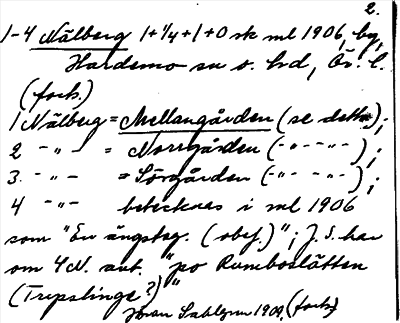 2.
1-4 Nälberg 1+1/4+1+0 sk ml 1906, by,
Hardemo sn o. hd, Ör. l.
(forts.)
1 Nälberg = Mellangården (se detta);
2 -"- = Norrgården (-"- -"-);
3. -"- = Sörgården (-"- -"-);
4 -"- betecknas i ml 1906
som "En ängslag. (obef.)"; J. S. har
om 4 N. ant. "på Rumboslätten
(Tripslinge?)"
Jöran Sahlgren 1909. (forts.)